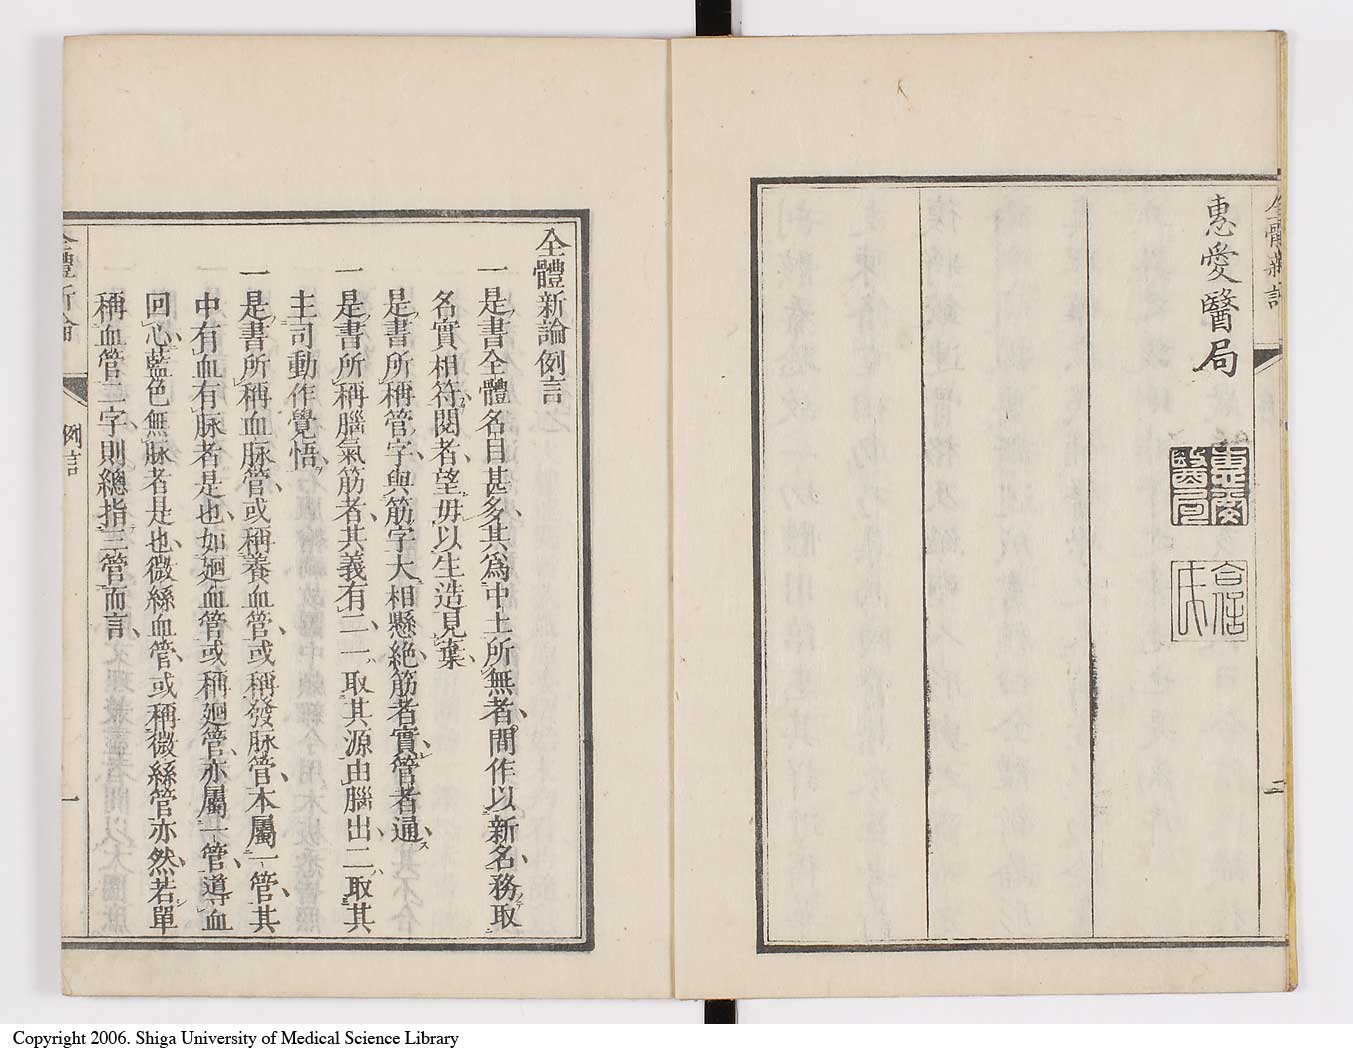 全體新論
二
惠愛醫局
惠愛醫局
合信氏
全體新論例言
一是書全體名目甚多其爲中土所無者間作以新名務取
名實相符閱者望毋以生造見棄
是書所稱管字與筋字大相懸絶筋者實管者通
一是書所稱腦氣筋者其義有二一取其源由腦出二取其
主司動作覺悟
一是書所稱血脉管或稱養血管或稱發脉管本屬一管其
中有血有脉者是也如廻血管或稱廻管亦屬一管導血
回心藍色無脉者是也微絲血管或稱微絲管亦然若單
稱血管二字則總指三管而言
全體新論
例言
一
Copyright 2006. Shiga University of Medical Science Library